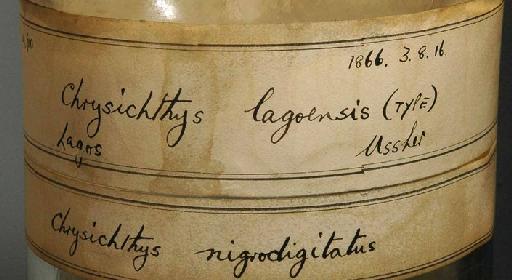 1866. 3. 8. 16.
Chrysichthys lagoensis (TYPE)
Lagos Ussher
Chrysichthys nigrodigitatus